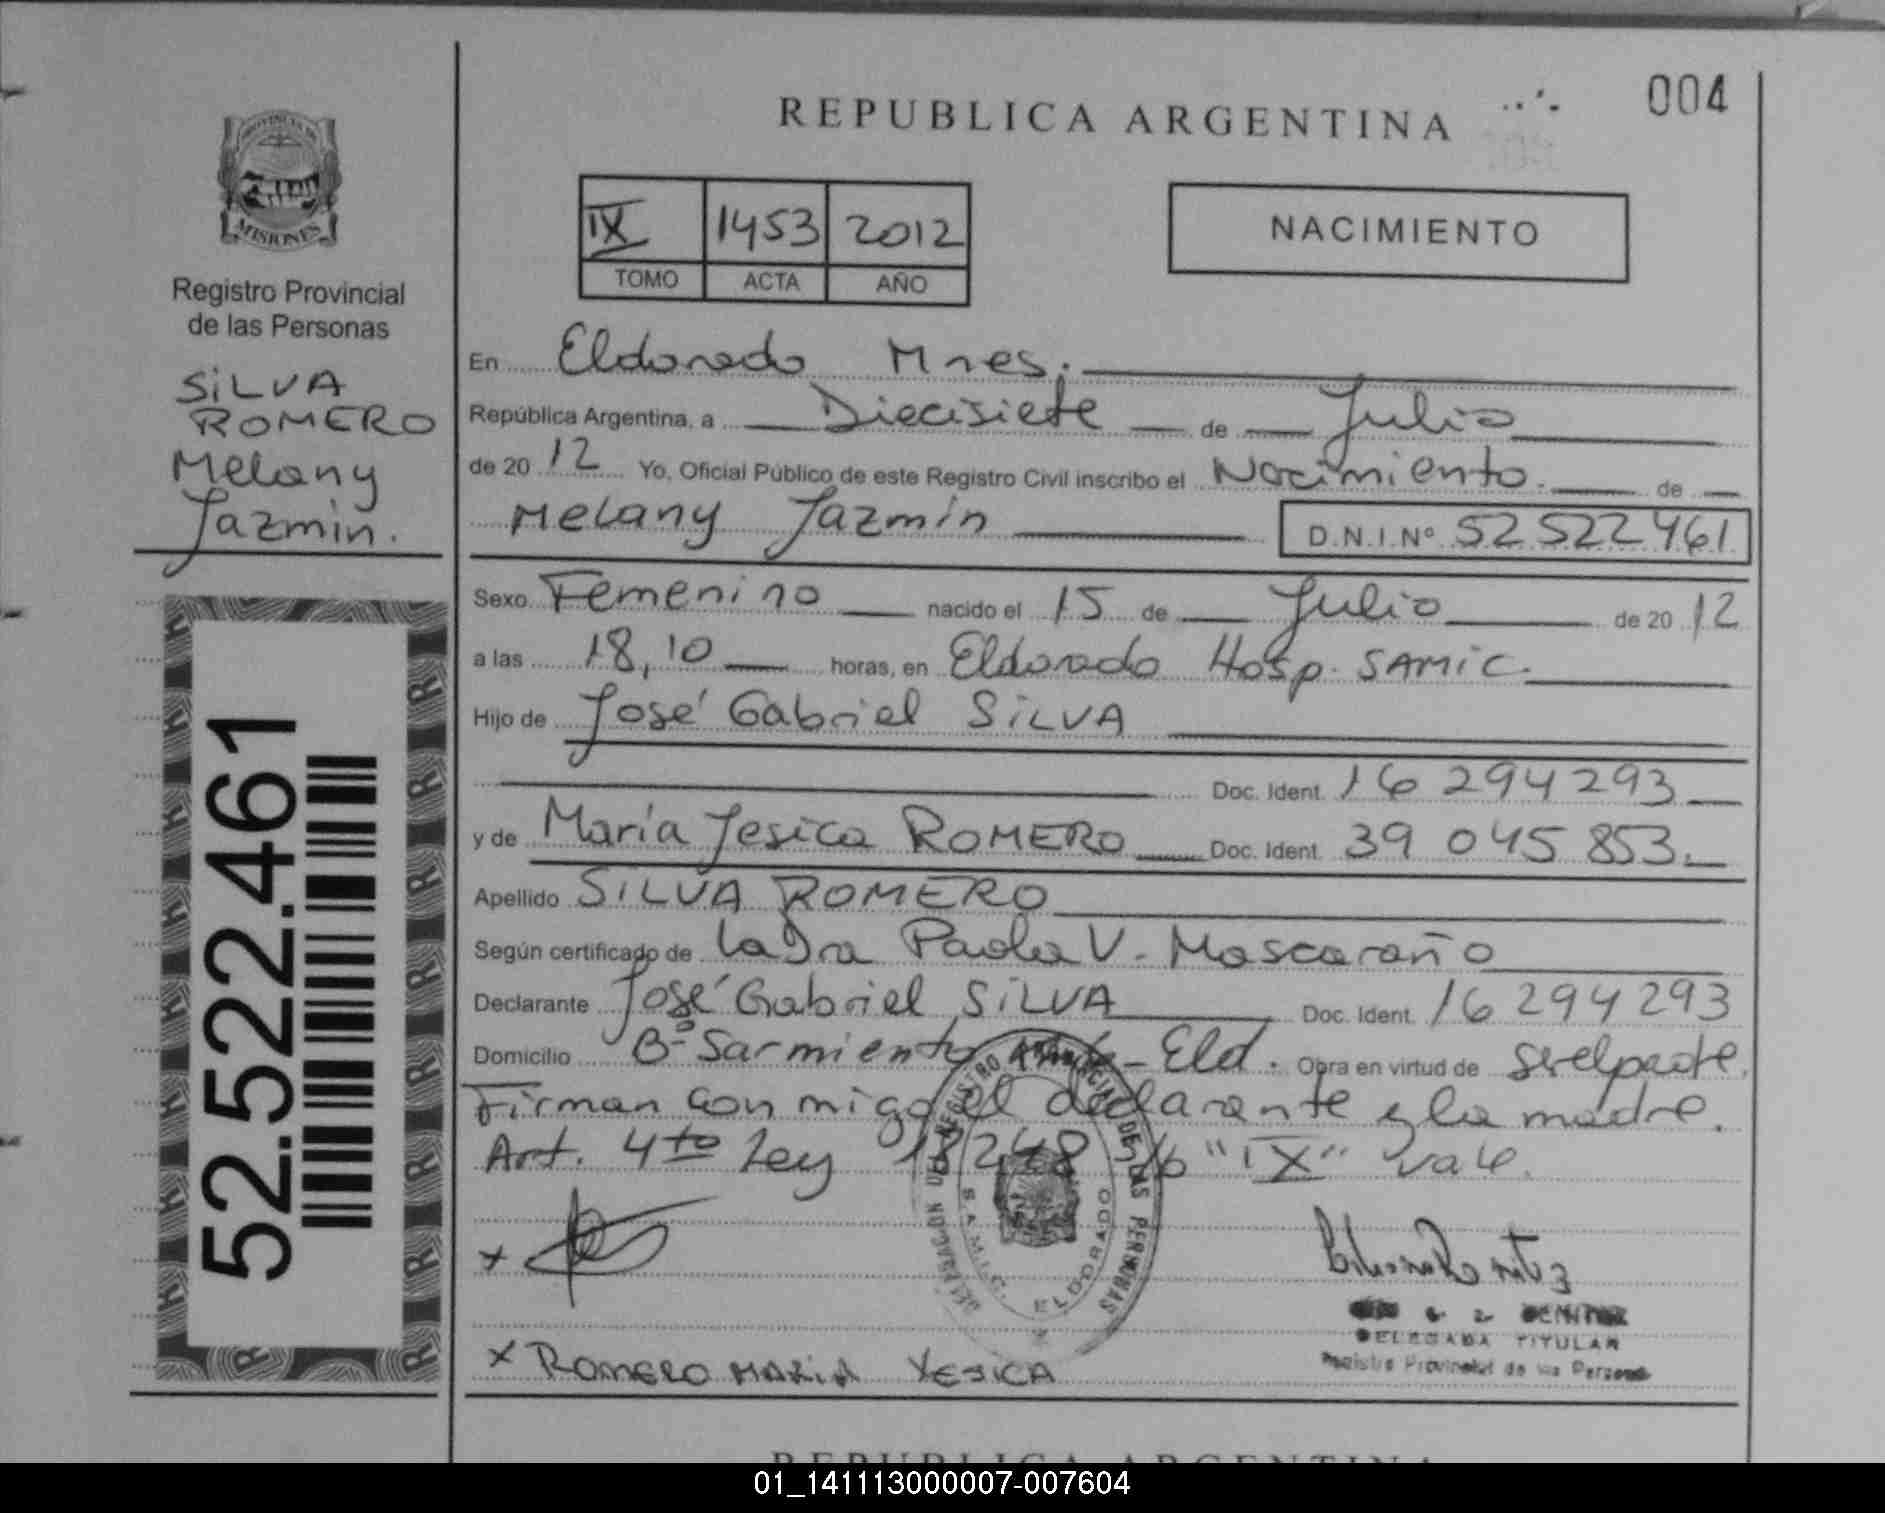 004
REPUBLICA ARGENTINA
PROVINCIA DE
MISIONES
Registro Provincial
de las Personas
SILVA
ROMERO
Melany
Jazmin.
IX 1453 2012
TOMO ACTA AÑO
NACIMIENTO
En Eldorado Mnes.
República Argentina, a Diecisiete de Julio
de 20 12 Yo, Oficial Público de este Registro Civil inscribo el Nacimiento. de
Melany Jazmin D.N.I.Nº 52 522 461
Sexo Femenino nacido el 15 de Julio de 20 12
a las 18,10 horas, en Eldorado Hosp. SAMIC.
Hijo de José Gabriel SILVA
Doc. Ident. 16 294 293
y de María Jesica ROMERO Doc. Ident. 39 045 853.
Apellido SILVA ROMERO
Según certificado de la Dra Paola V. Mascaraño
Declarante José Gabriel SILVA Doc. Ident. 16 294 293
Domicilio Bº Sarmiento - Eld. Obra en virtud de
Firman conmigo el declarante y la madre.
Art. 4to Ley 18248 S/b "IX" vale.
52.522.461
DELEGACION DEL REGISTRO PROVINCIAL DE LAS PERSONAS
S.A.M.I.C. ELDORADO
DELEGADA TITULAR
Registro Provincial de las Personas
x
x ROMERO MARIA YESICA
REPUBLICA ARGENTINA
01_141113000007-007604